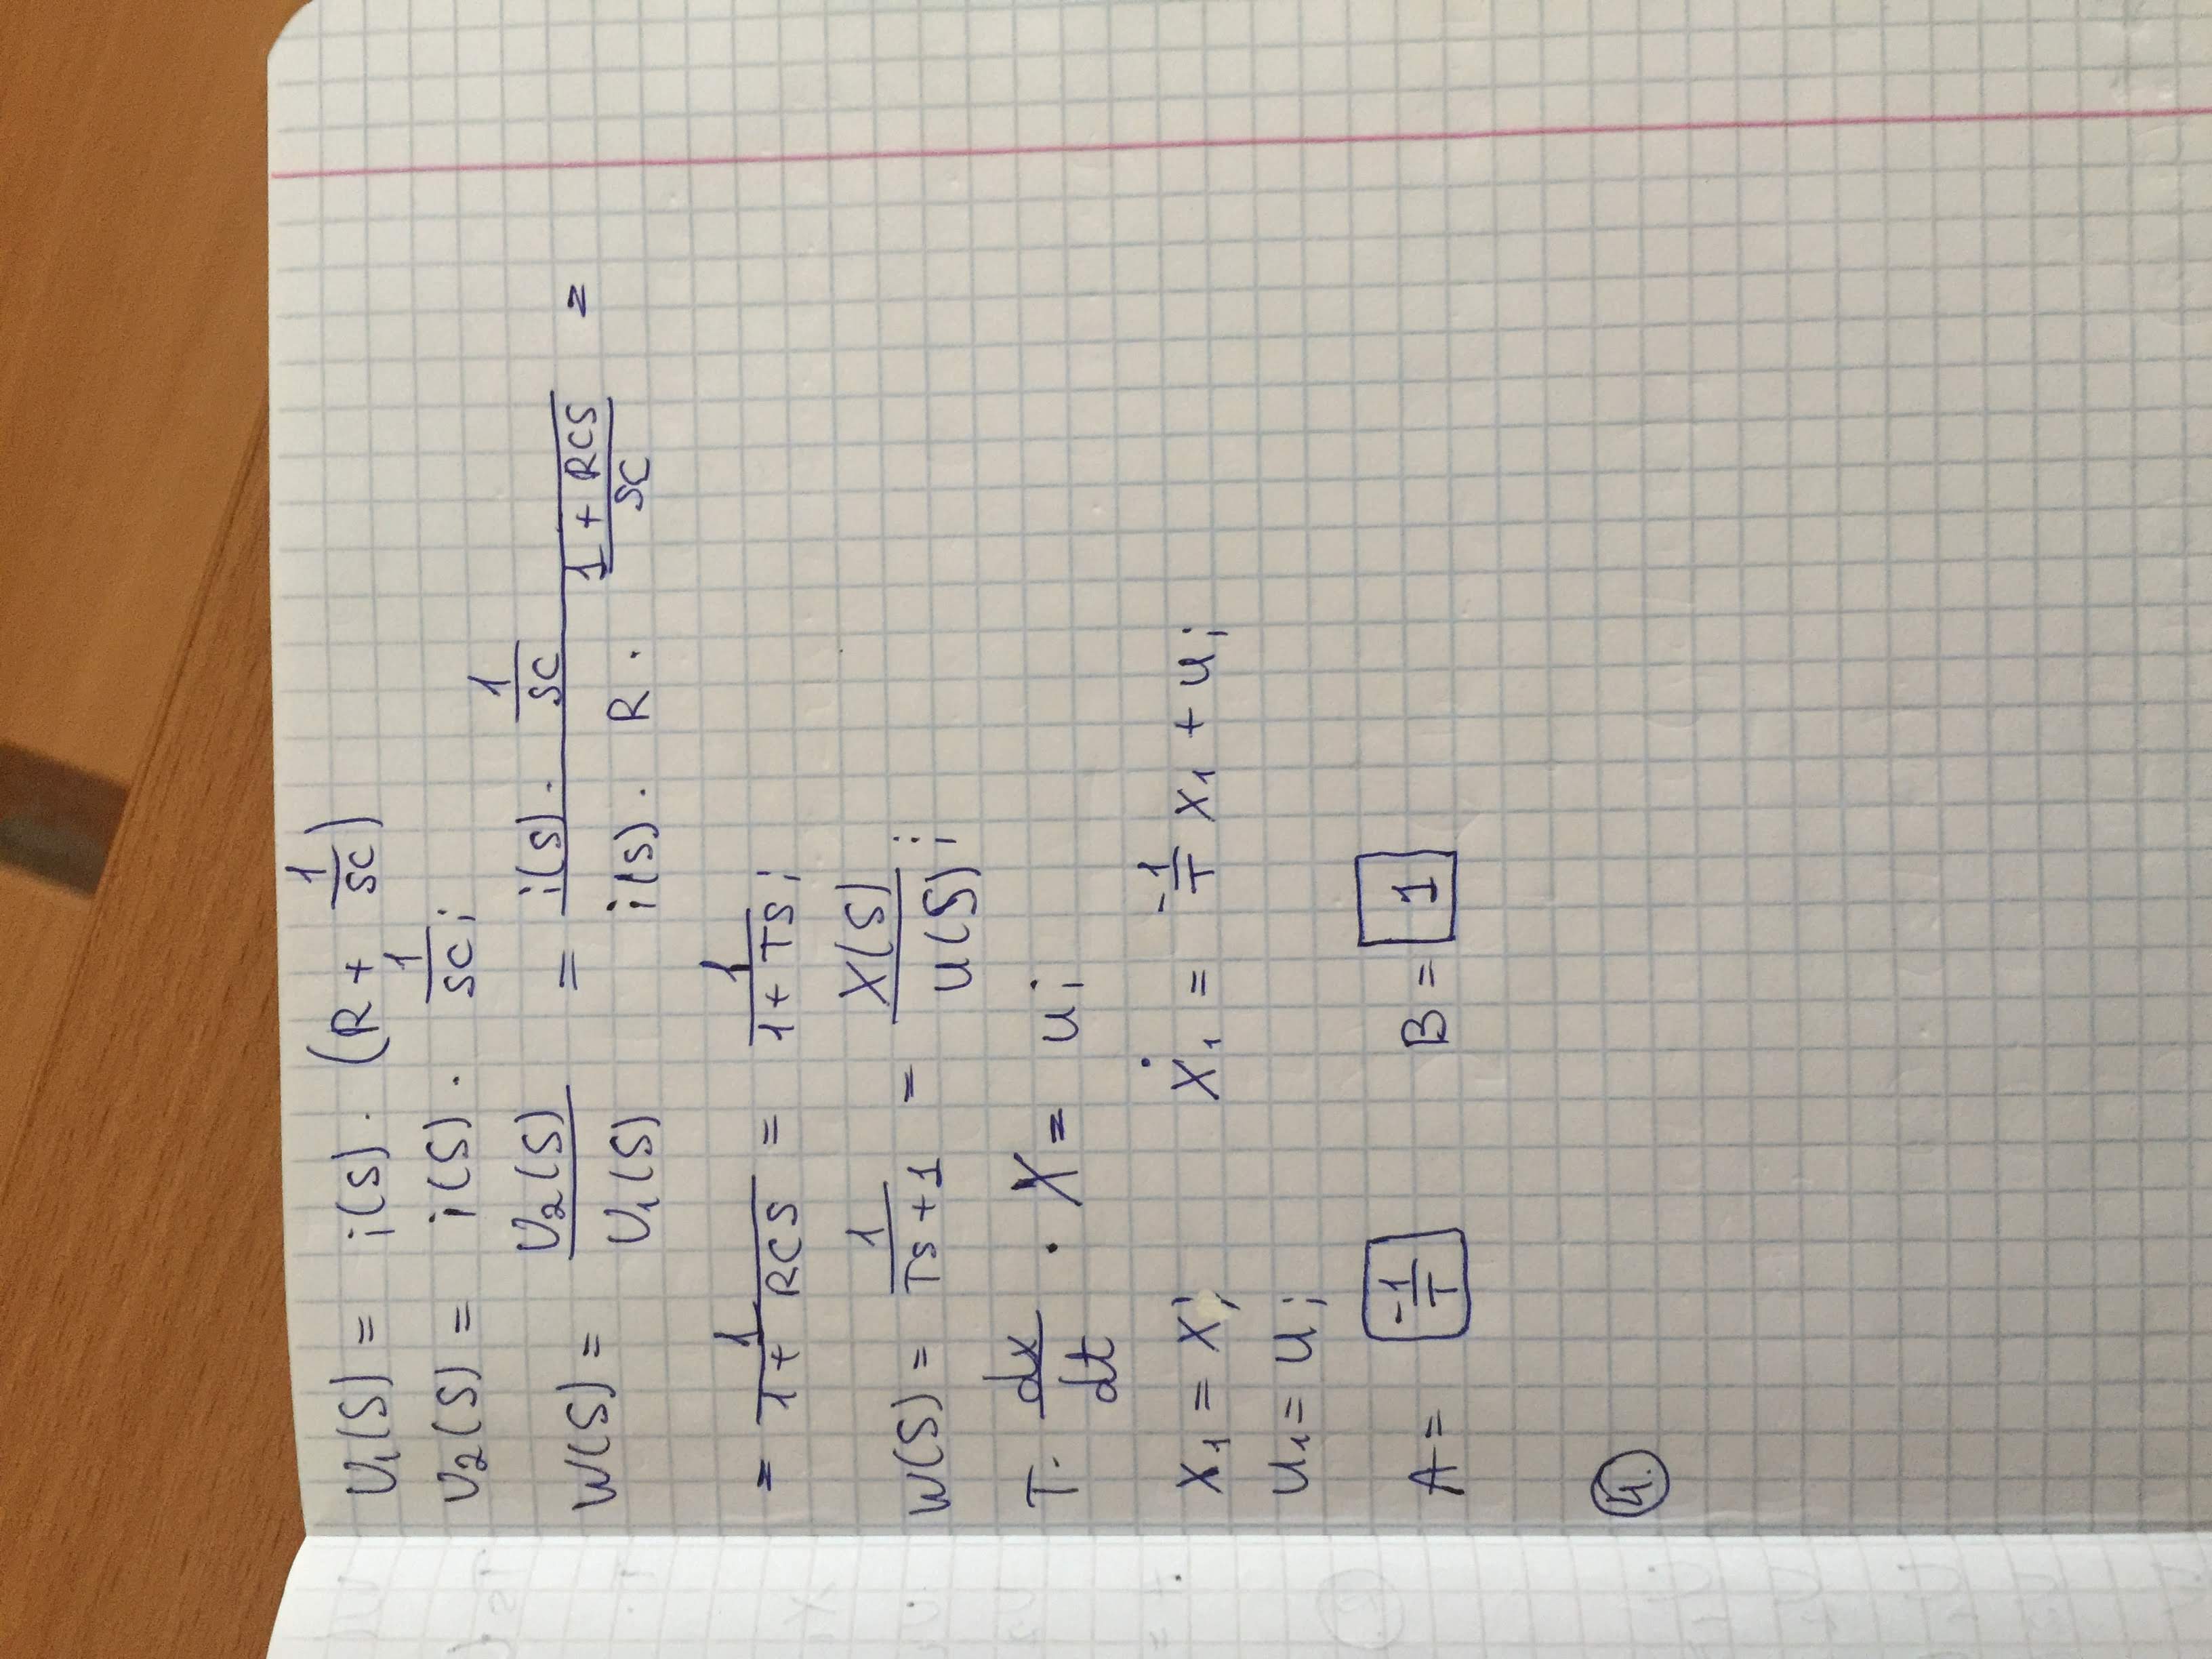 U₁(S) = i(S) · (R + 1/SC)
U₂(S) = i(S) · 1/SC ;
W(S) = U₂(S)/U₁(S) = (i(s) · 1/SC)/(i(s) · R · (1 + RCS)/SC) =
= 1/(1 + RCS) = 1/(1 + TS) ;
W(S) = 1/(TS + 1) = X(S)/U(S) ;
T · dx/dt · X = u ;
X₁ = X ; Ẋ₁ = -1/T X₁ + u ;
U₁ = U ;
A = -1/T B = 1
4.